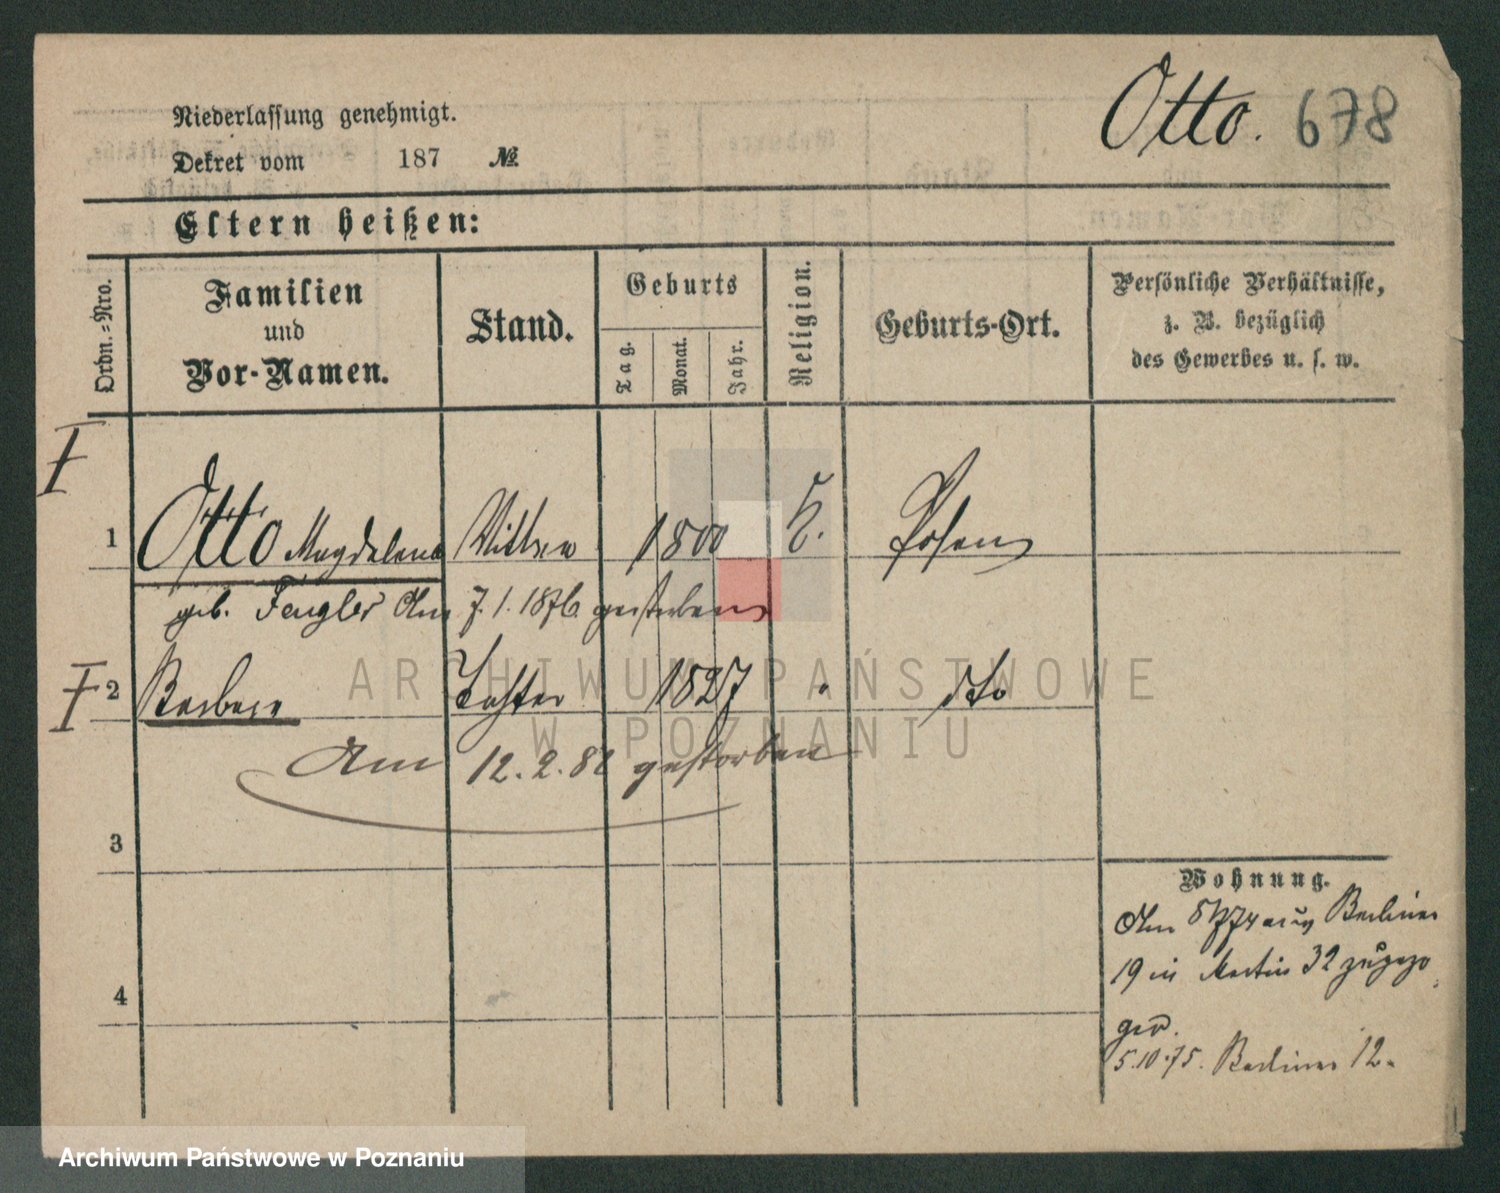 Otto. 678
Niederlassung genehmigt.
Dekret vom 187 №
Eltern heißen:
Ordn.=Nro.
Familien
und
Vor-Namen.
Stand.
Geburts
Tag.
Monat.
Jahr.
Religion.
Geburts-Ort.
Persönliche Verhältnisse,
z. B. bezüglich
des Gewerbes u. s. w.
1 Otto Magdalena Wittwe 1800 K. Posen
geb. Fengler Am 7.1.1876 gestorben
2 Barbara Tochter 1827 " dto
Am 12.2.82 gestorben
3
4
Wohnung.
Am aus Berliner
19 in Martin 32 zugezo
gen.
5.10.75. Berliner 12.
ARCHIWUM PAŃSTWOWE
W POZNANIU
Archiwum Państwowe w Poznaniu